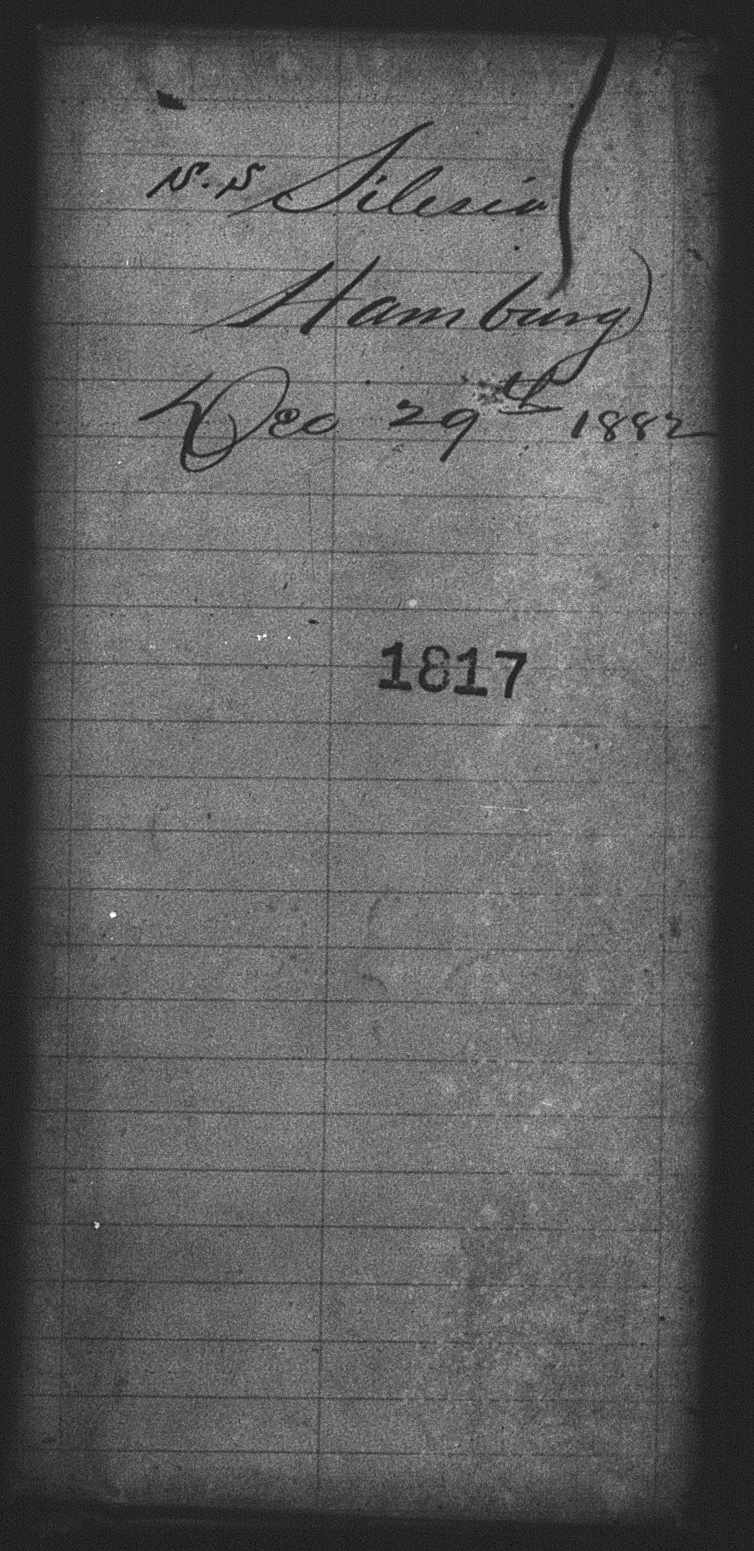 S.S Silesia
Hamburg
Dec 29th 1882
1817